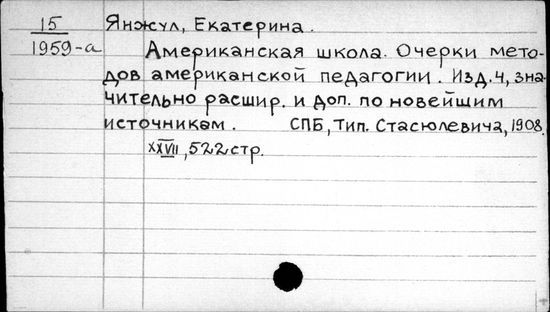 15
1959-а
Янжул, Екатерина.
Американская школа. Очерки мето-
дов американской педагогии. Изд. 4, зна-
чительно расшир. и доп. по новейшим
источникам. СПБ, Тип. Стасюлевича, 1908.
XXVII, 522 стр.